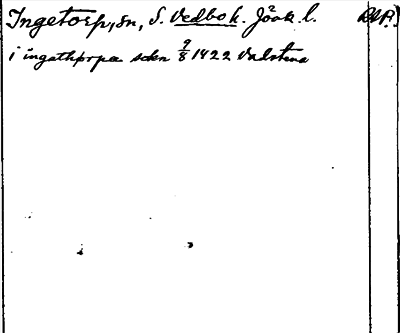 Ingetorp, sn, S. Vedbo h. Jönk. l. RAP.
i ingathorpa sokn 9/8 1422 Vadstena